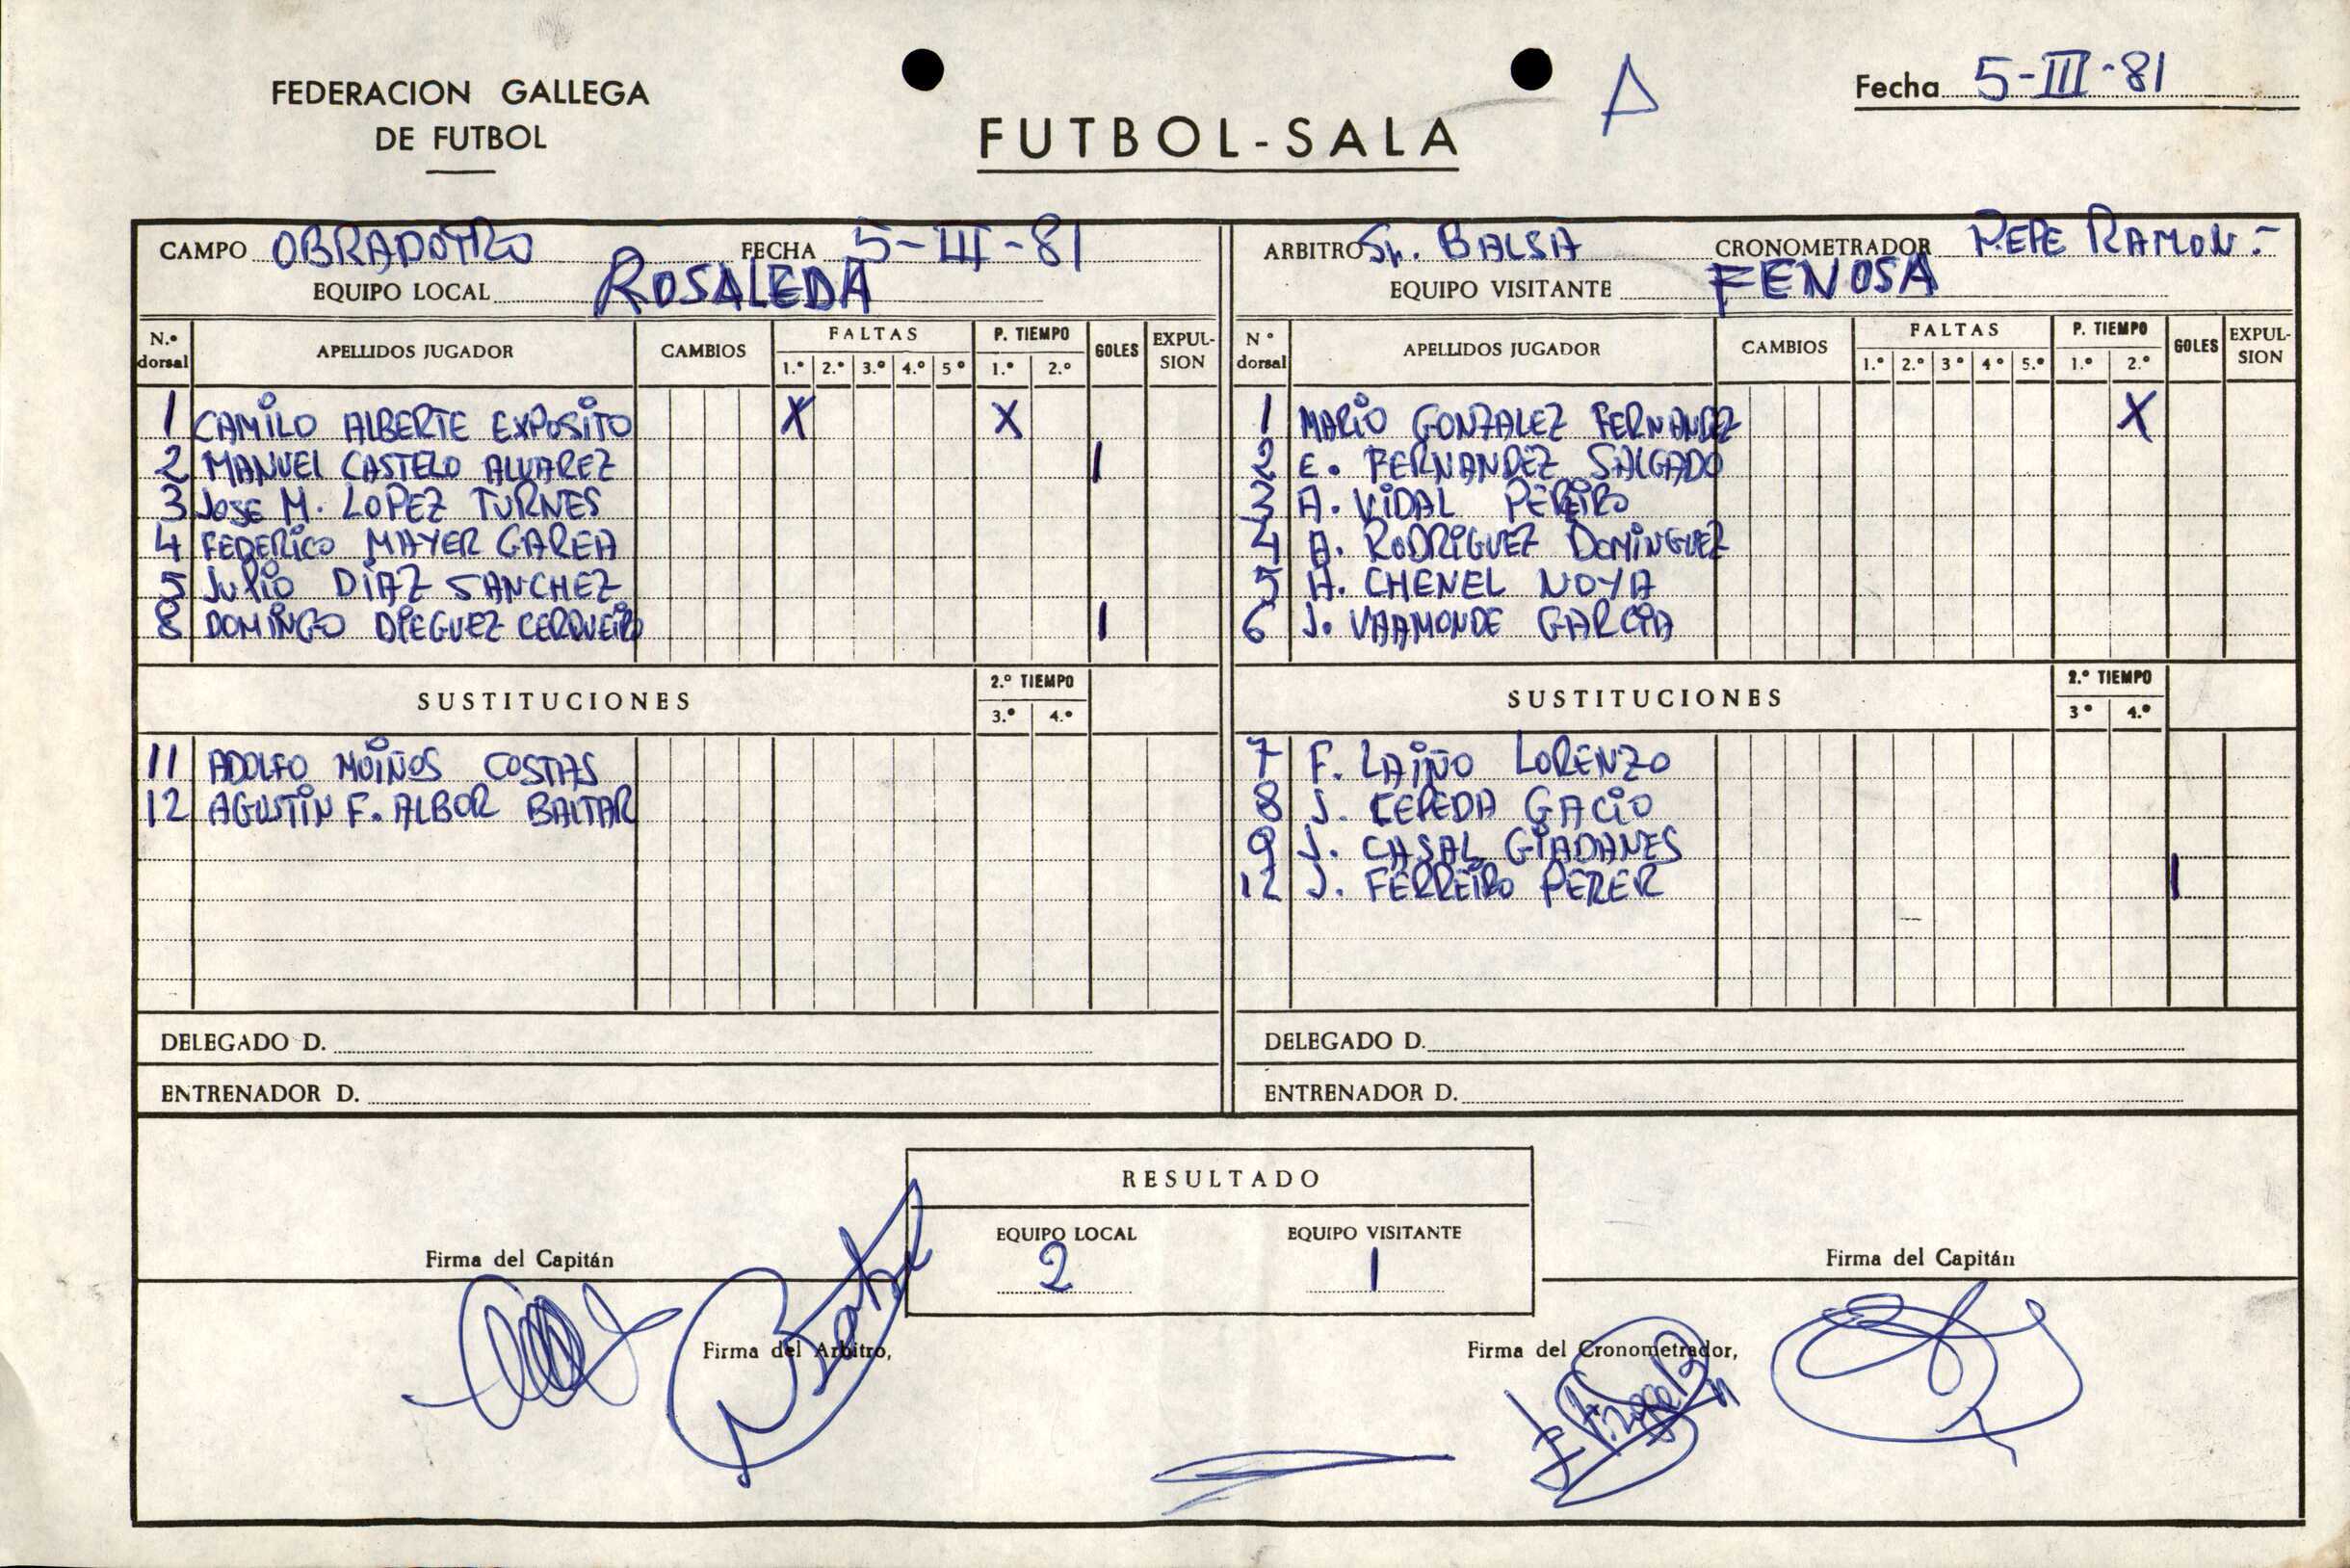 FEDERACION GALLEGA
DE FUTBOL
FUTBOL-SALA
A
Fecha 5-III-81
CAMPO OBRADOIRO FECHA 5-III-81
EQUIPO LOCAL ROSALEDA
N.º dorsal APELLIDOS JUGADOR CAMBIOS FALTAS 1.º 2.º 3.º 4.º 5º P. TIEMPO 1.º 2.º GOLES EXPULSION
1 CAMILO ALBERTE EXPOSITO X X
2 MANUEL CASTELO ALVAREZ 1
3 JOSE M. LOPEZ TURNES
4 FEDERICO MAYER GAREA
5 JULIO DIAZ SANCHEZ
8 DOMINGO DIEGUEZ CERQUEIRO 1
SUSTITUCIONES 2.º TIEMPO 3.º 4.º
11 ADOLFO MOIÑOS COSTAS
12 AGUSTIN F. ALBOR BALTAR
DELEGADO D.
ENTRENADOR D.
ARBITRO Sr. BALSA CRONOMETRADOR PEPE RAMON.-
EQUIPO VISITANTE FENOSA
Nº dorsal APELLIDOS JUGADOR CAMBIOS FALTAS 1.º 2.º 3º 4º 5.º P. TIEMPO 1.º 2.º GOLES EXPULSION
1 MARIO GONZALEZ FERNANDEZ X
2 E. FERNANDEZ SALGADO
3 A. VIDAL PEREIRO
4 A. RODRIGUEZ DOMINGUEZ
5 A. CHENEL NOYA
6 J. VAAMONDE GARCIA
SUSTITUCIONES 2.º TIEMPO 3º 4.º
7 F. LAIÑO LORENZO
8 J. CEPEDA GACIO
9 J. CASAL GIADANES
12 J. FERREIRO PERER 1
DELEGADO D.
ENTRENADOR D.
RESULTADO
EQUIPO LOCAL EQUIPO VISITANTE
2 1
Firma del Capitán
Firma del Capitán
Firma del Arbitro,
Firma del Cronometrador,